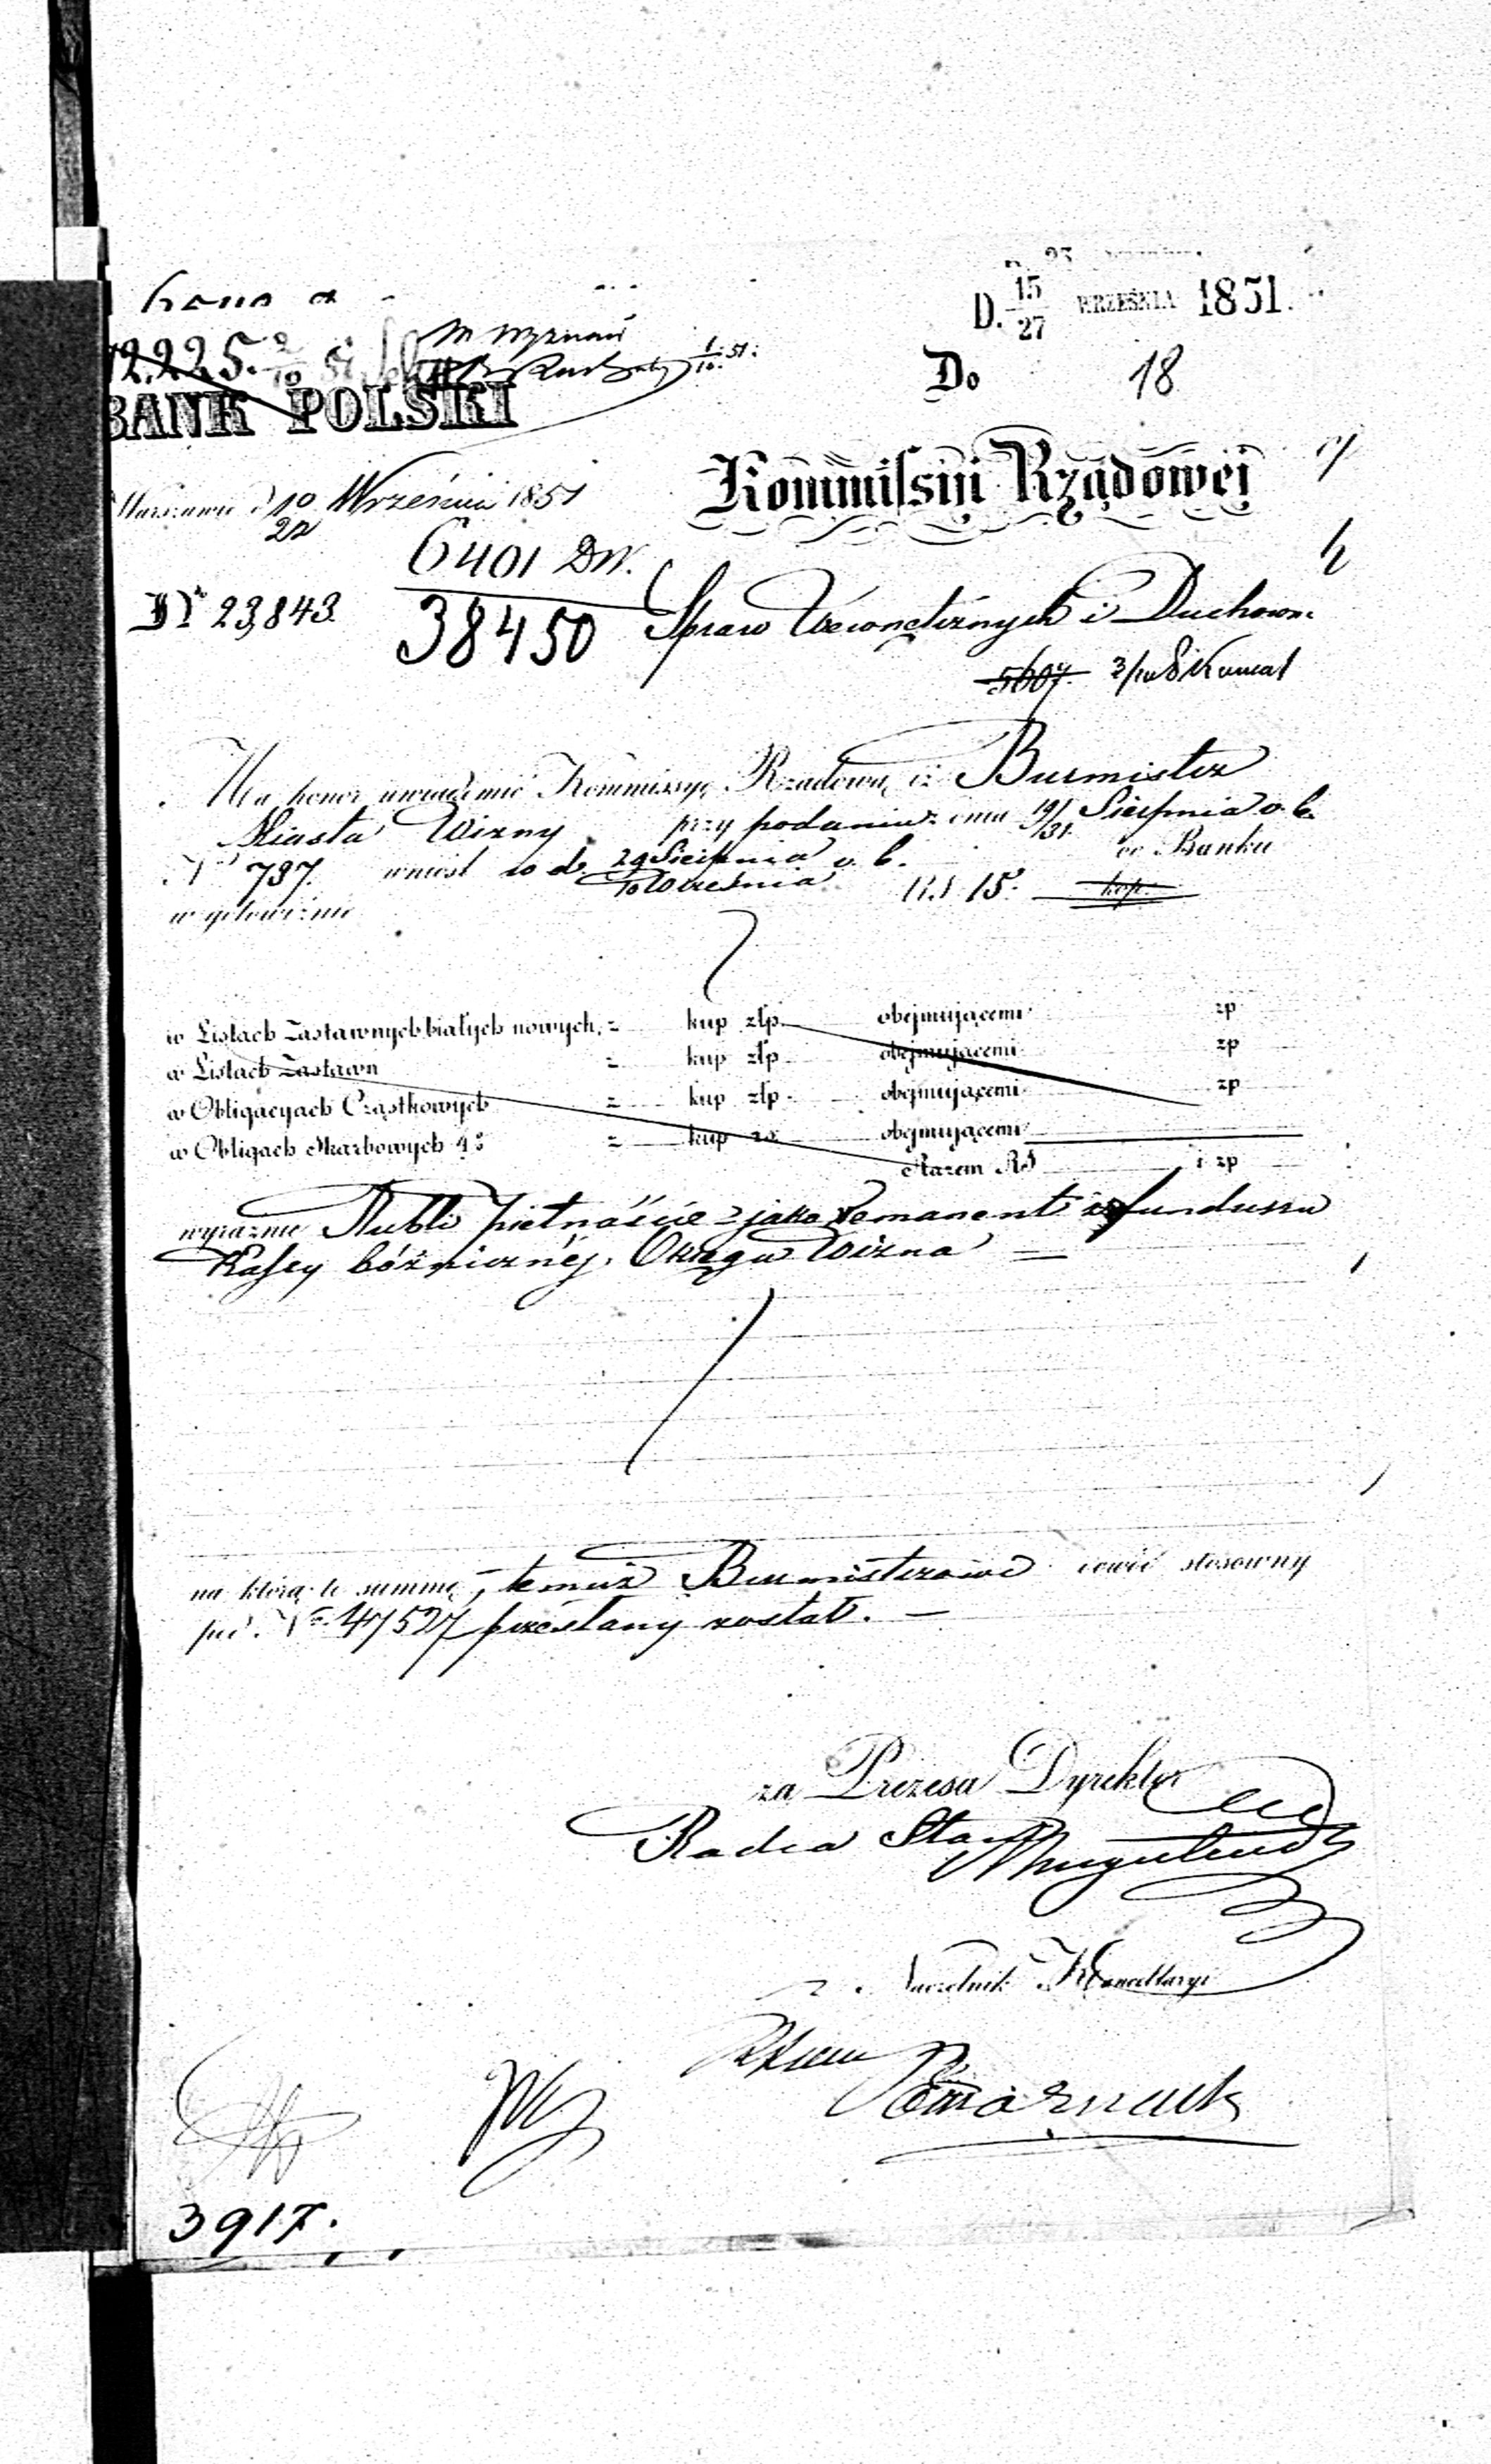 D. 15/27 WRZEŚNIA 1851.
12,225.
BANK POLSKI
Do 18
Kommissyi Rządowej
Warszawa d 10/22 Września 1851
6401 DW.
Nr 23,843.
38450
Spraw Wewnętrznych i Duchown.
5607
Ma honor uwiadomić Kommissyę Rządową, iż Burmistrz
Miasta Wizny przy podaniu z dnia 19/31 Sierpnia r. b.
Nr 737. wniósł w d. 29 Sierpnia/10 Września r. b. do Banku
w gotowiźnie RS 15. kop.
w Listach Zastawnych białych nowych, = kup złp. obejmującemi zp
w Listach Zastawn = kup złp. obejmującemi zp
w Obligacyach Cząstkowych = kup złp. obejmującemi zp
w Obligach Skarbowych 4% = kup obejmującemi
Razem RS i zp
wyraźnie Rubli piętnaście = jako remanent z funduszu
Kassy bóżnicznéj Okręgu Wizna —
na którą to summę, temuż Burmistrzowi dowód stosowny
pod Nr 47527 przesłany został. —
za Prezesa Dyrektor
Radca Stanu
Naczelnik Kancellaryi
3917.